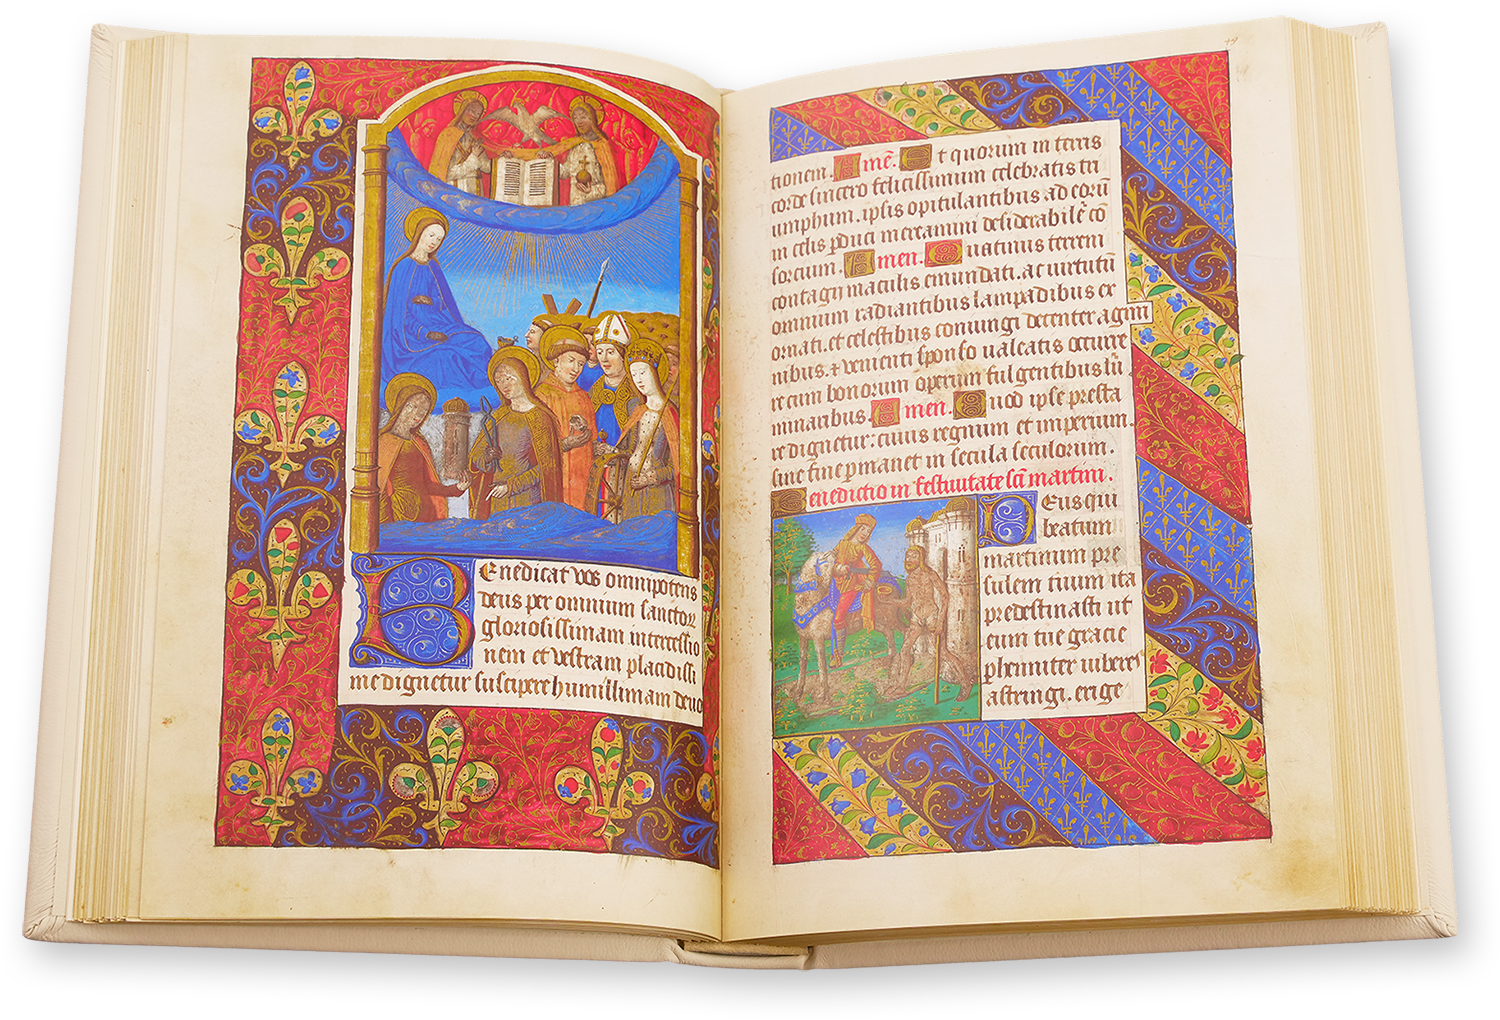 Enedicat vos omnipotens
deus per omnium sanctoꝝ
gloriosissimam intercessio
nem et vestram placidissi
me dignetur suscipere humillimam deuo
tionem. Amē. Et quorum in terris
corde sincero felicissimum celebratis tri
umphum. ipsis opitulantibus ad eorū
in celis ꝑduci mereamini desiderabilē cō
sorcium. Amen. Quatinus terreni
contagij maculis emundati. ac virtutū
omnium radiantibus lampadibus ex
ornati. et celestibus coniungi decenter agim
nibus. et venienti sponso valeatis occurre
re cum bonorum operum fulgentibus lu
minaribus. Amen. Quod ipse presta
re dignetur: cuius regnum et imperium.
sine fine ꝑmanet in secula seculorum.
Benedictio in festiuitate scī martini.
Deus qui
beatum
martinum pre
sulem tuum ita
predestinasti ut
eum tue gracie
pleniter iuberes
astringi. erige